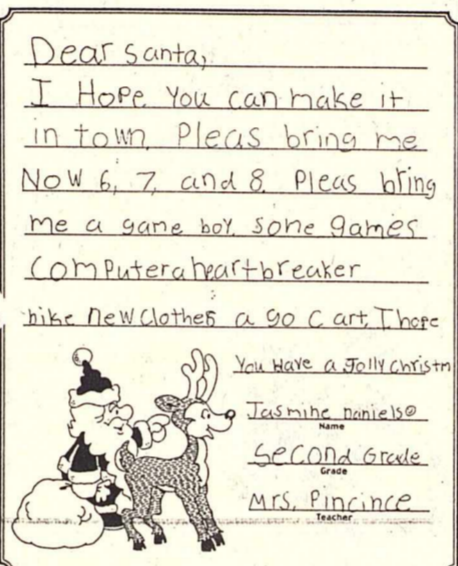 Dear Santa,
I Hope You can make it
in town. Pleas bring me
Now 6, 7, and 8. Pleas bring
me a game boy. some games
computer a heartbreaker
bike new clothes a go cart, I hope
You Have a Jolly Christm
Jasmine Daniels
Name
Second Grade
Grade
Mrs. Pincince
Teacher